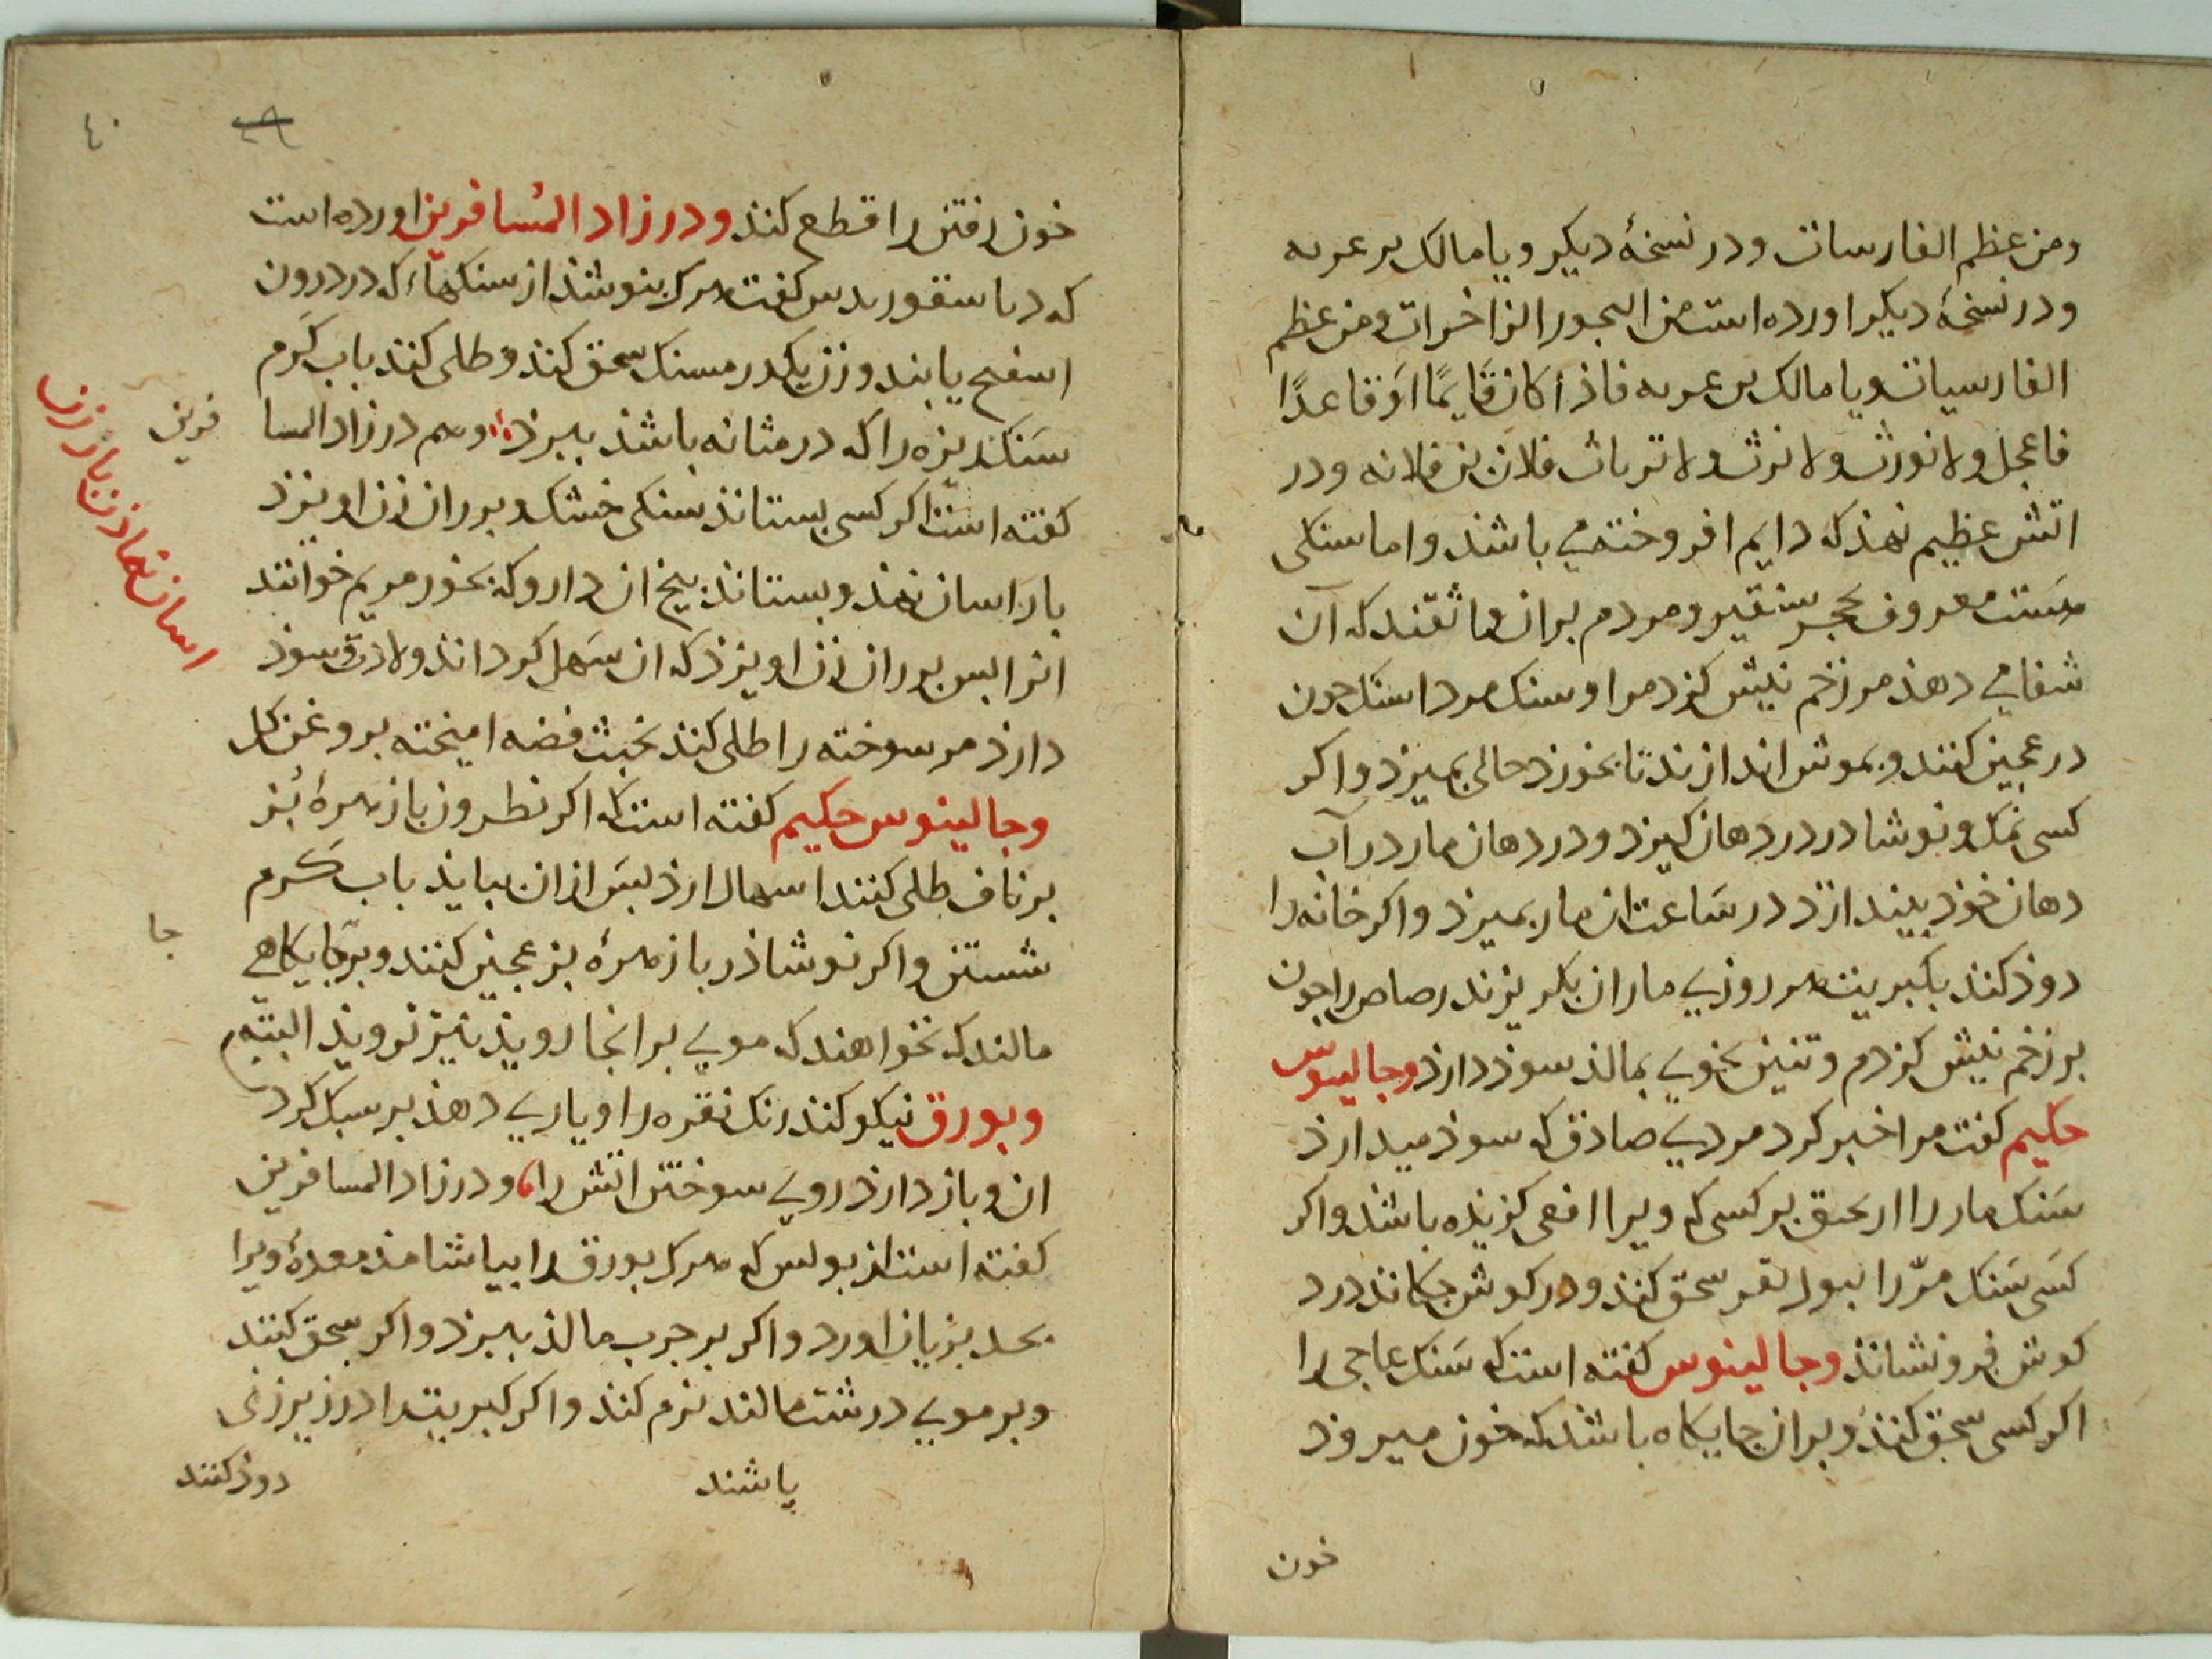 ومن عظم الفارسات ودر نسخهٔ دیکر ویا مالک بر عربه
ودر نسخهٔ دیکر اورده است من البحور الزاخرات ومن عظم
الفارسیات ویا مالک بر عربه فاذا کان قایمًا او قاعدًا
فاعجل ولا تورث ولا ترث ولا تربات فلان بن فلانه ودر
اتش عظیم نهذ که دایم افروخته می باشذ واما سنکی
هست معروف بحجر سنقیر ومردم بران واثقند که آن
شفا می دهذ مر زخم نیش کزدم را وسنک مرداسنک چون
در عجین کنند وبموش اندازند تا بخورذ حالی بمیرذ واکر
کسی نمک ونوشادر در دهان کیرد ودر دهان مار در آب
دهان خوذ بیندازد در ساعت ان مار بمیرذ واکر خانه را
دوذ کنند بکبریت هر روزی ماران بکریزند رصاص را چون
بر زخم نیش کزدم وتنین بخوبی بمالذ سوذ دارذ وجالینوس
حکیم کفت مرا خبر کرد مردی صادق که سوذ میدارذ
سنک مار را بر کسی که ویرا افعی کزیده باشذ واکر
کسی سنک مرّ را سحق کنذ ودر کوش چکانذ درد
کوش فرو نشانذ وجالینوس کفته است که سنک عاجی را
اکر کسی سحق کنذ وبران جایکاه باشذ که خون میروذ
خون
٤٠
خون رفتن را قطع کنذ ودر زاد المسافرین اورده است
که دیاسقوریدس کفت هر که بنوشذ از سنکهاء که در درون
اسفنج یابند وزن یکدرم سنک سحق کنذ وطلی کنذ باب کرم
سنک ریزه را که در مثانه باشذ ببرذ وهم در زاد المسا
فرین
کفته است اکر کسی بستانذ سنکی خشک وبر ران زن اویزد
بار اسان نهذ وبستانذ بیخ ان دارو که بخور مریم خوانند
انرا بس بر ران زن اویزذ که ان سهل کردانذ ولادت وسوذ
دارذ مر سوخته را طلی کنذ بخبث فضه امیخته بروغن کل
وجالینوس حکیم کفته است که اکر نطرون با زهرهٔ بز
بر ناف طلی کنند اسهال ارذ بس از ان بباید باب کرم
شستن واکر نوشاذر با زهرهٔ بز عجین کنند وبر جایکاهی
جا
مالند که نخواهند که موی بر انجا روید نیز نروید البته
وبورق نیکو کنذ رنک نقره را ویاری دهذ بر سبک کرد
ان وباز دارذ روی سوختن اتش را ودر زاد المسافرین
کفته است از بولس که هر که بورق را بیاشامذ معدهٔ ویرا
بحد بزیان اورد واکر بر جرب مالذ ببرذ واکر سحق کنند
وبر موی درشت مالند نرم کنذ واکر کبریت را در زیر زنی
باشند
دوذ کنند
اسان نهاذن بار زن